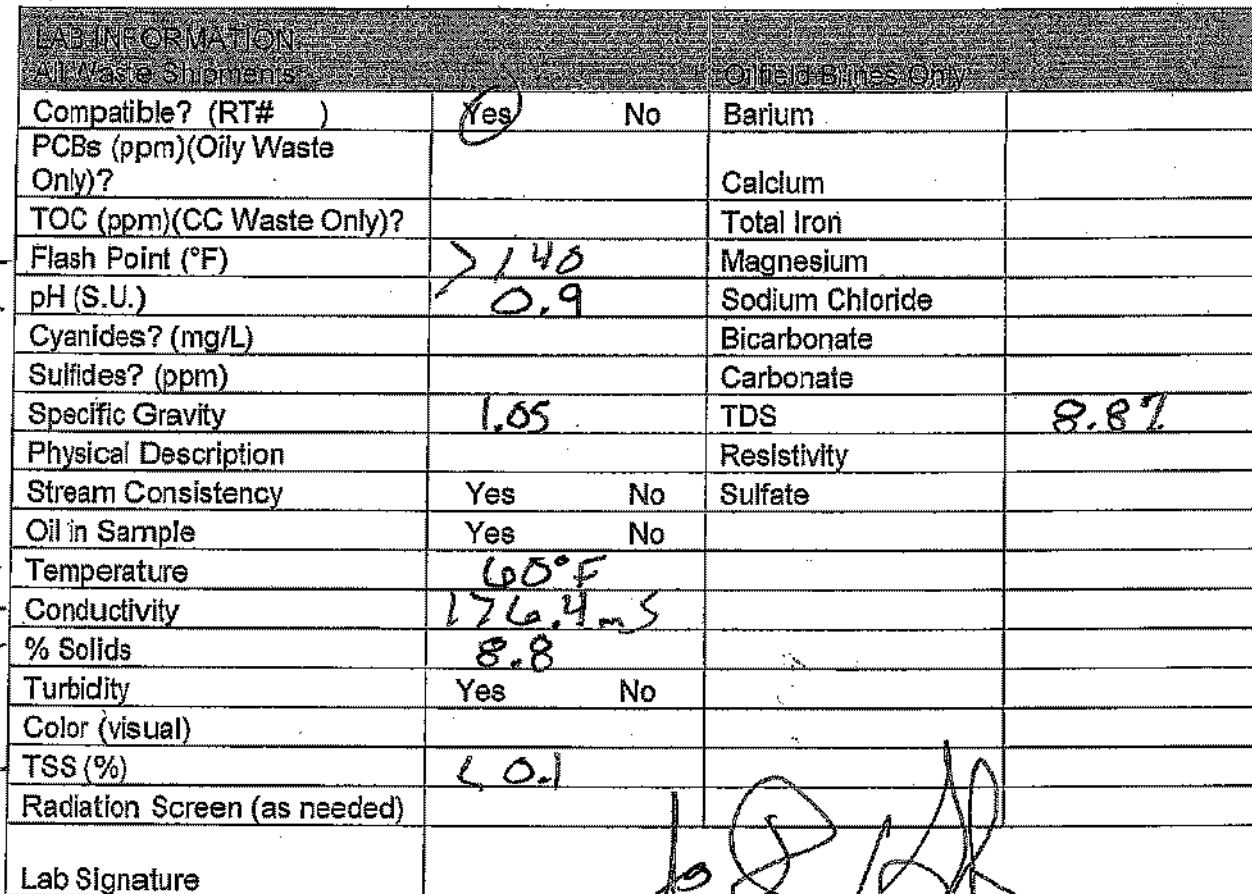 LAB INFORMATION
All Waste Shipments Oilfield Brines Only
Compatible? (RT# ) Yes No Barium
PCBs (ppm)(Oily Waste
Only)? Calcium
TOC (ppm)(CC Waste Only)? Total Iron
Flash Point (°F) >140 Magnesium
pH (S.U.) 0.9 Sodium Chloride
Cyanides? (mg/L) Bicarbonate
Sulfides? (ppm) Carbonate
Specific Gravity 1.05 TDS 8.8%
Physical Description Resistivity
Stream Consistency Yes No Sulfate
Oil in Sample Yes No
Temperature 60°F
Conductivity 176.4 mS
% Solids 8.8
Turbidity Yes No
Color (visual)
TSS (%) < 0.1
Radiation Screen (as needed)
Lab Signature